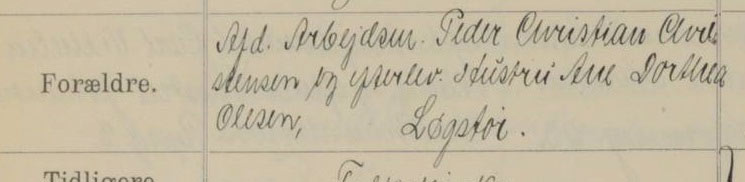 Afd. Arbejdsm. Peder Christian Chri-
Forældre. stensen og efterlev. Hustru Ane Dorthea
Olesen, Løgstør.
Tidligere